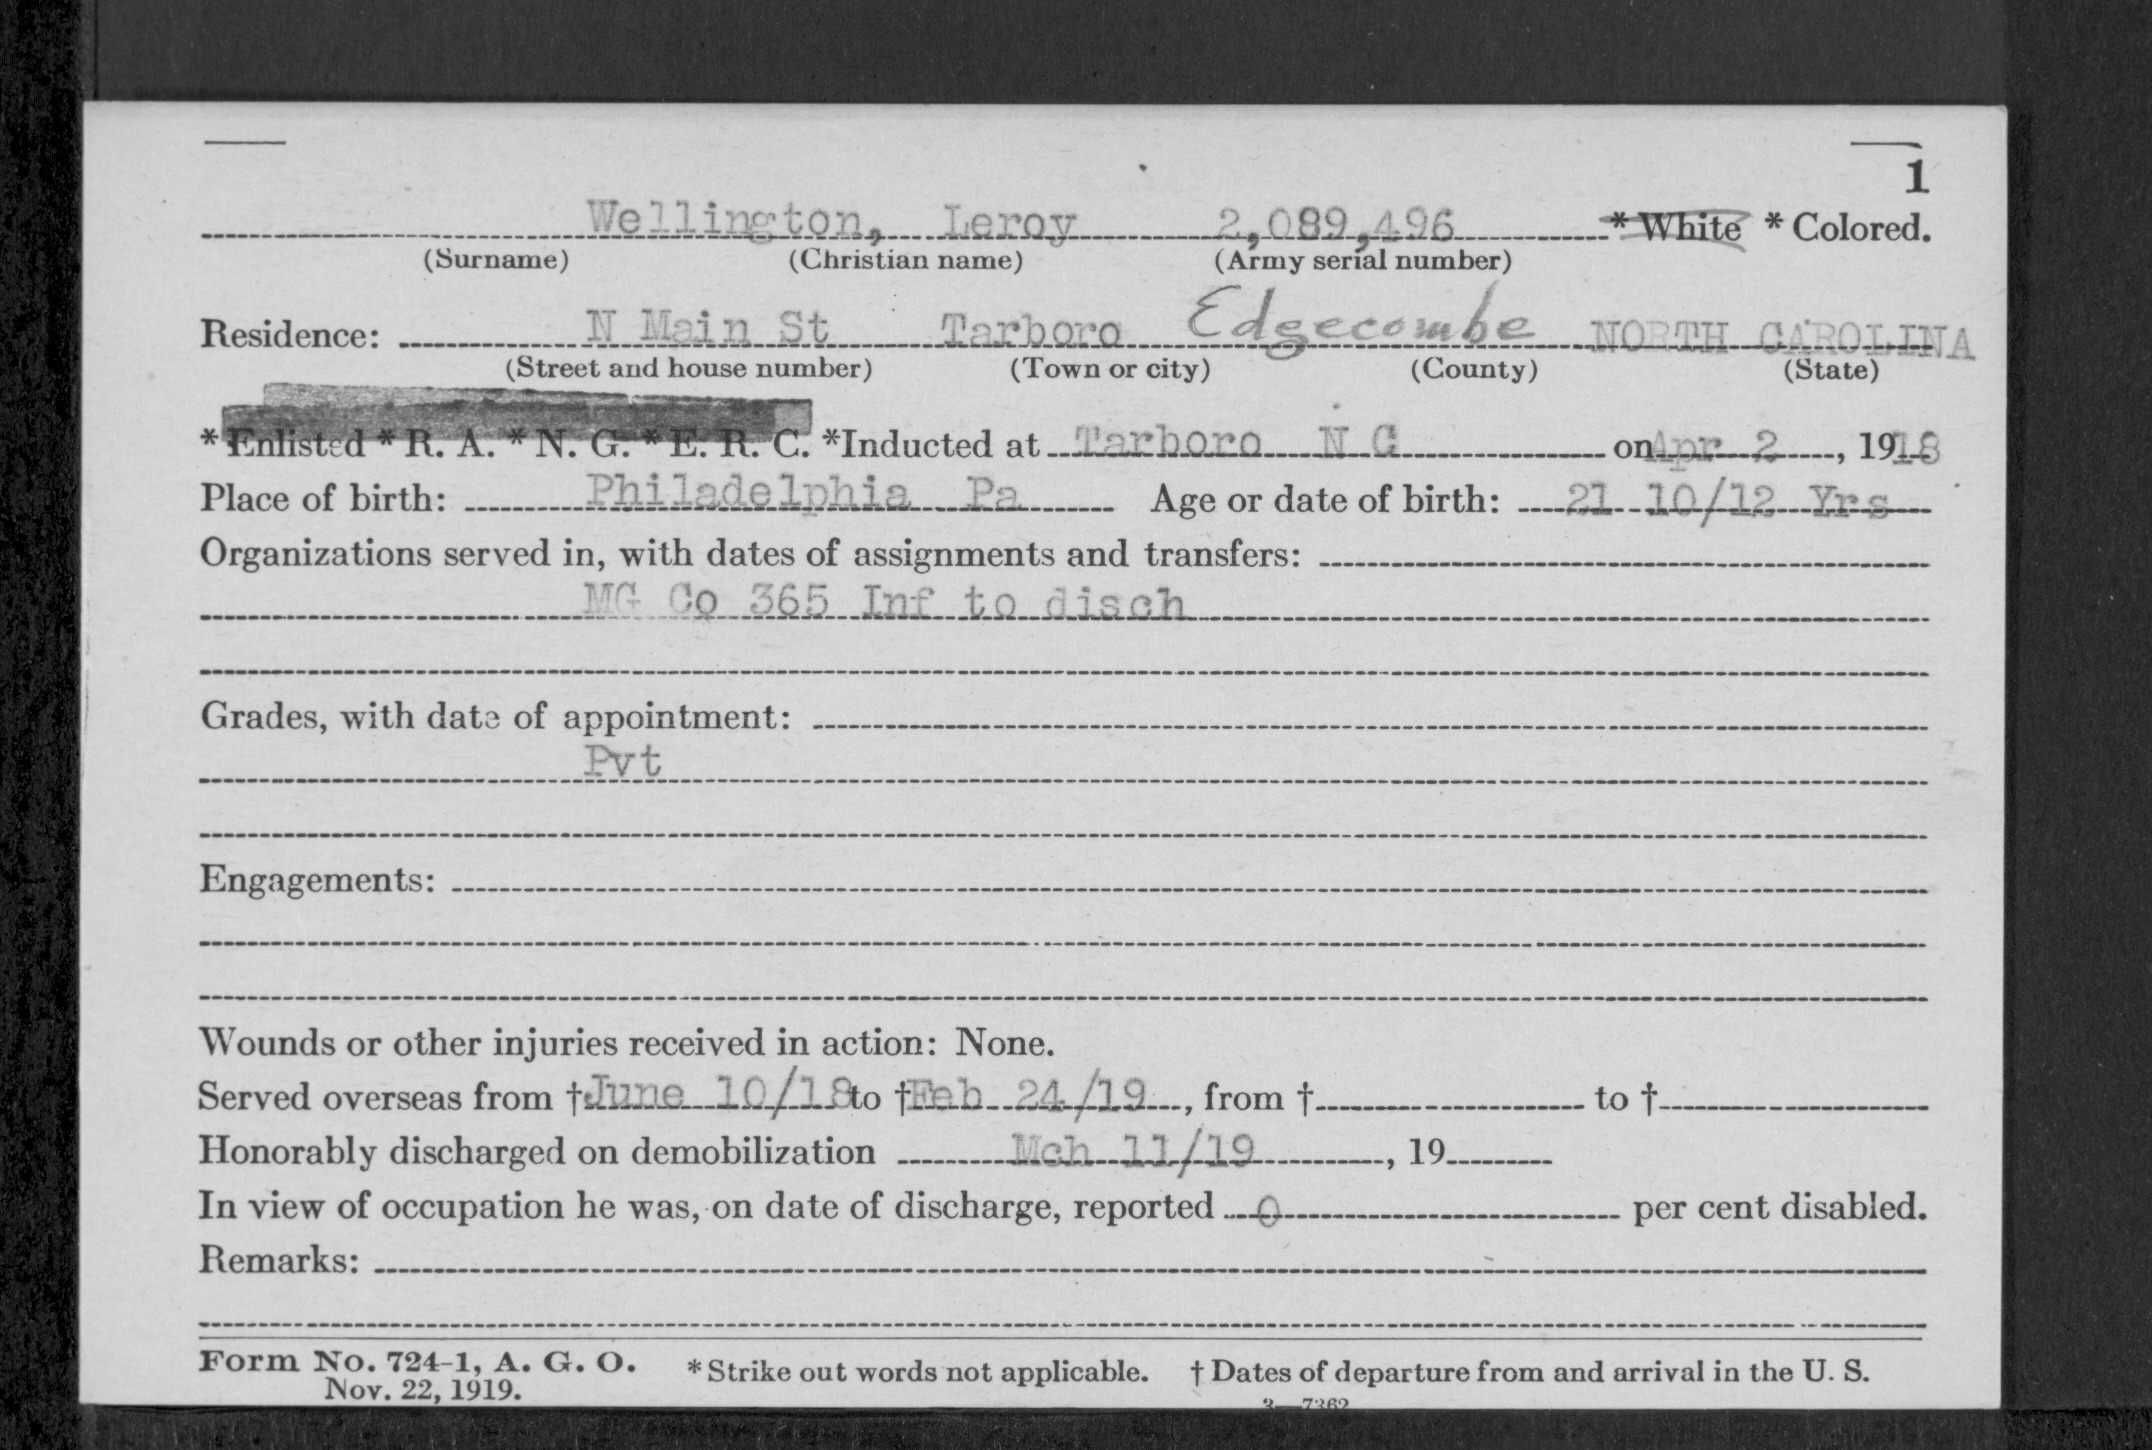 1
Wellington, Leroy 2,089,496 * White * Colored.
(Surname) (Christian name) (Army serial number)
Residence: N Main St Tarboro Edgecombe NORTH CAROLINA
(Street and house number) (Town or city) (County) (State)
* Enlisted * R. A. * N. G. * E. R. C. *Inducted at Tarboro N C on Apr 2, 1918
Place of birth: Philadelphia Pa Age or date of birth: 21 10/12 Yrs
Organizations served in, with dates of assignments and transfers:
MG Co 365 Inf to disch
Grades, with date of appointment:
Pvt
Engagements:
Wounds or other injuries received in action: None.
Served overseas from †June 10/18 to †Feb 24/19, from † to †
Honorably discharged on demobilization Mch 11/19, 19
In view of occupation he was, on date of discharge, reported 0 per cent disabled.
Remarks:
Form No. 724-1, A. G. O. * Strike out words not applicable. † Dates of departure from and arrival in the U. S.
Nov. 22, 1919.
3—7362